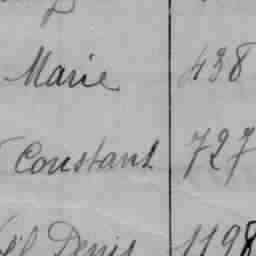 Marie 438
Constant 727
Denis 1198